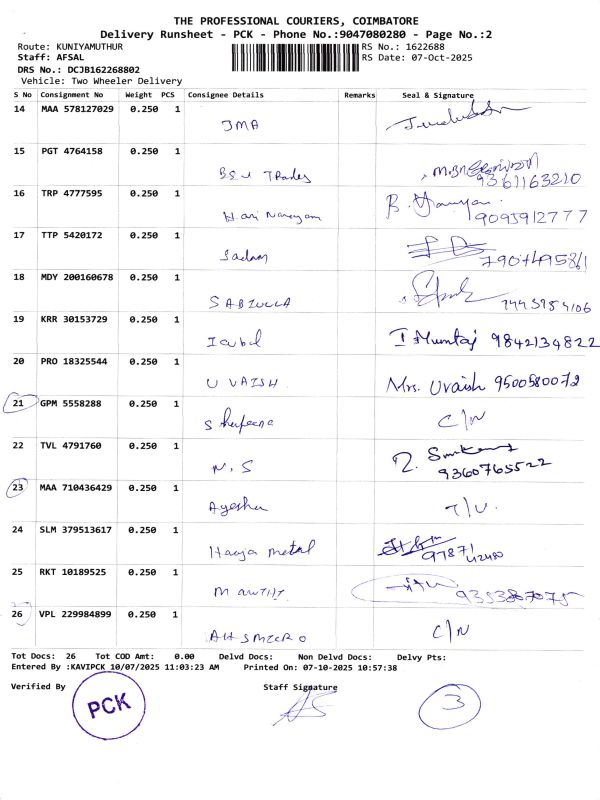 THE PROFESSIONAL COURIERS, COIMBATORE
Delivery Runsheet - PCK - Phone No.:9047080280 - Page No.:2
Route: KUNIYAMUTHUR
RS No.: 1622688
Staff: AFSAL
RS Date: 07-Oct-2025
DRS No.: DCJB162268802
Vehicle: Two Wheeler Delivery
S No Consignment No Weight PCS Consignee Details Remarks Seal & Signature
14 MAA 578127029 0.250 1
JMA
15 PGT 4764158 0.250 1
9361163210
16 TRP 4777595 0.250 1
Hari Narayan
9095912777
17 TTP 5420172 0.250 1
Sadam
18 MDY 200160678 0.250 1
SABIULLA
19 KRR 30153729 0.250 1
I Mumtaj 9842134822
20 PRO 18325544 0.250 1
U VAISH Mrs. Uvaish 9500580072
21 GPM 5558288 0.250 1
C/N
22 TVL 4791760 0.250 1
N.S
9360765522
23 MAA 710436429 0.250 1
Ayesha
24 SLM 379513617 0.250 1
Haaja metal
25 RKT 10189525 0.250 1
9353887075
26 VPL 229984899 0.250 1
C/N
Tot Docs: 26 Tot COD Amt: 0.00 Delvd Docs: Non Delvd Docs: Delvy Pts:
Entered By :KAVIPCK 10/07/2025 11:03:23 AM Printed On: 07-10-2025 10:57:38
Verified By Staff Signature
PCK
3